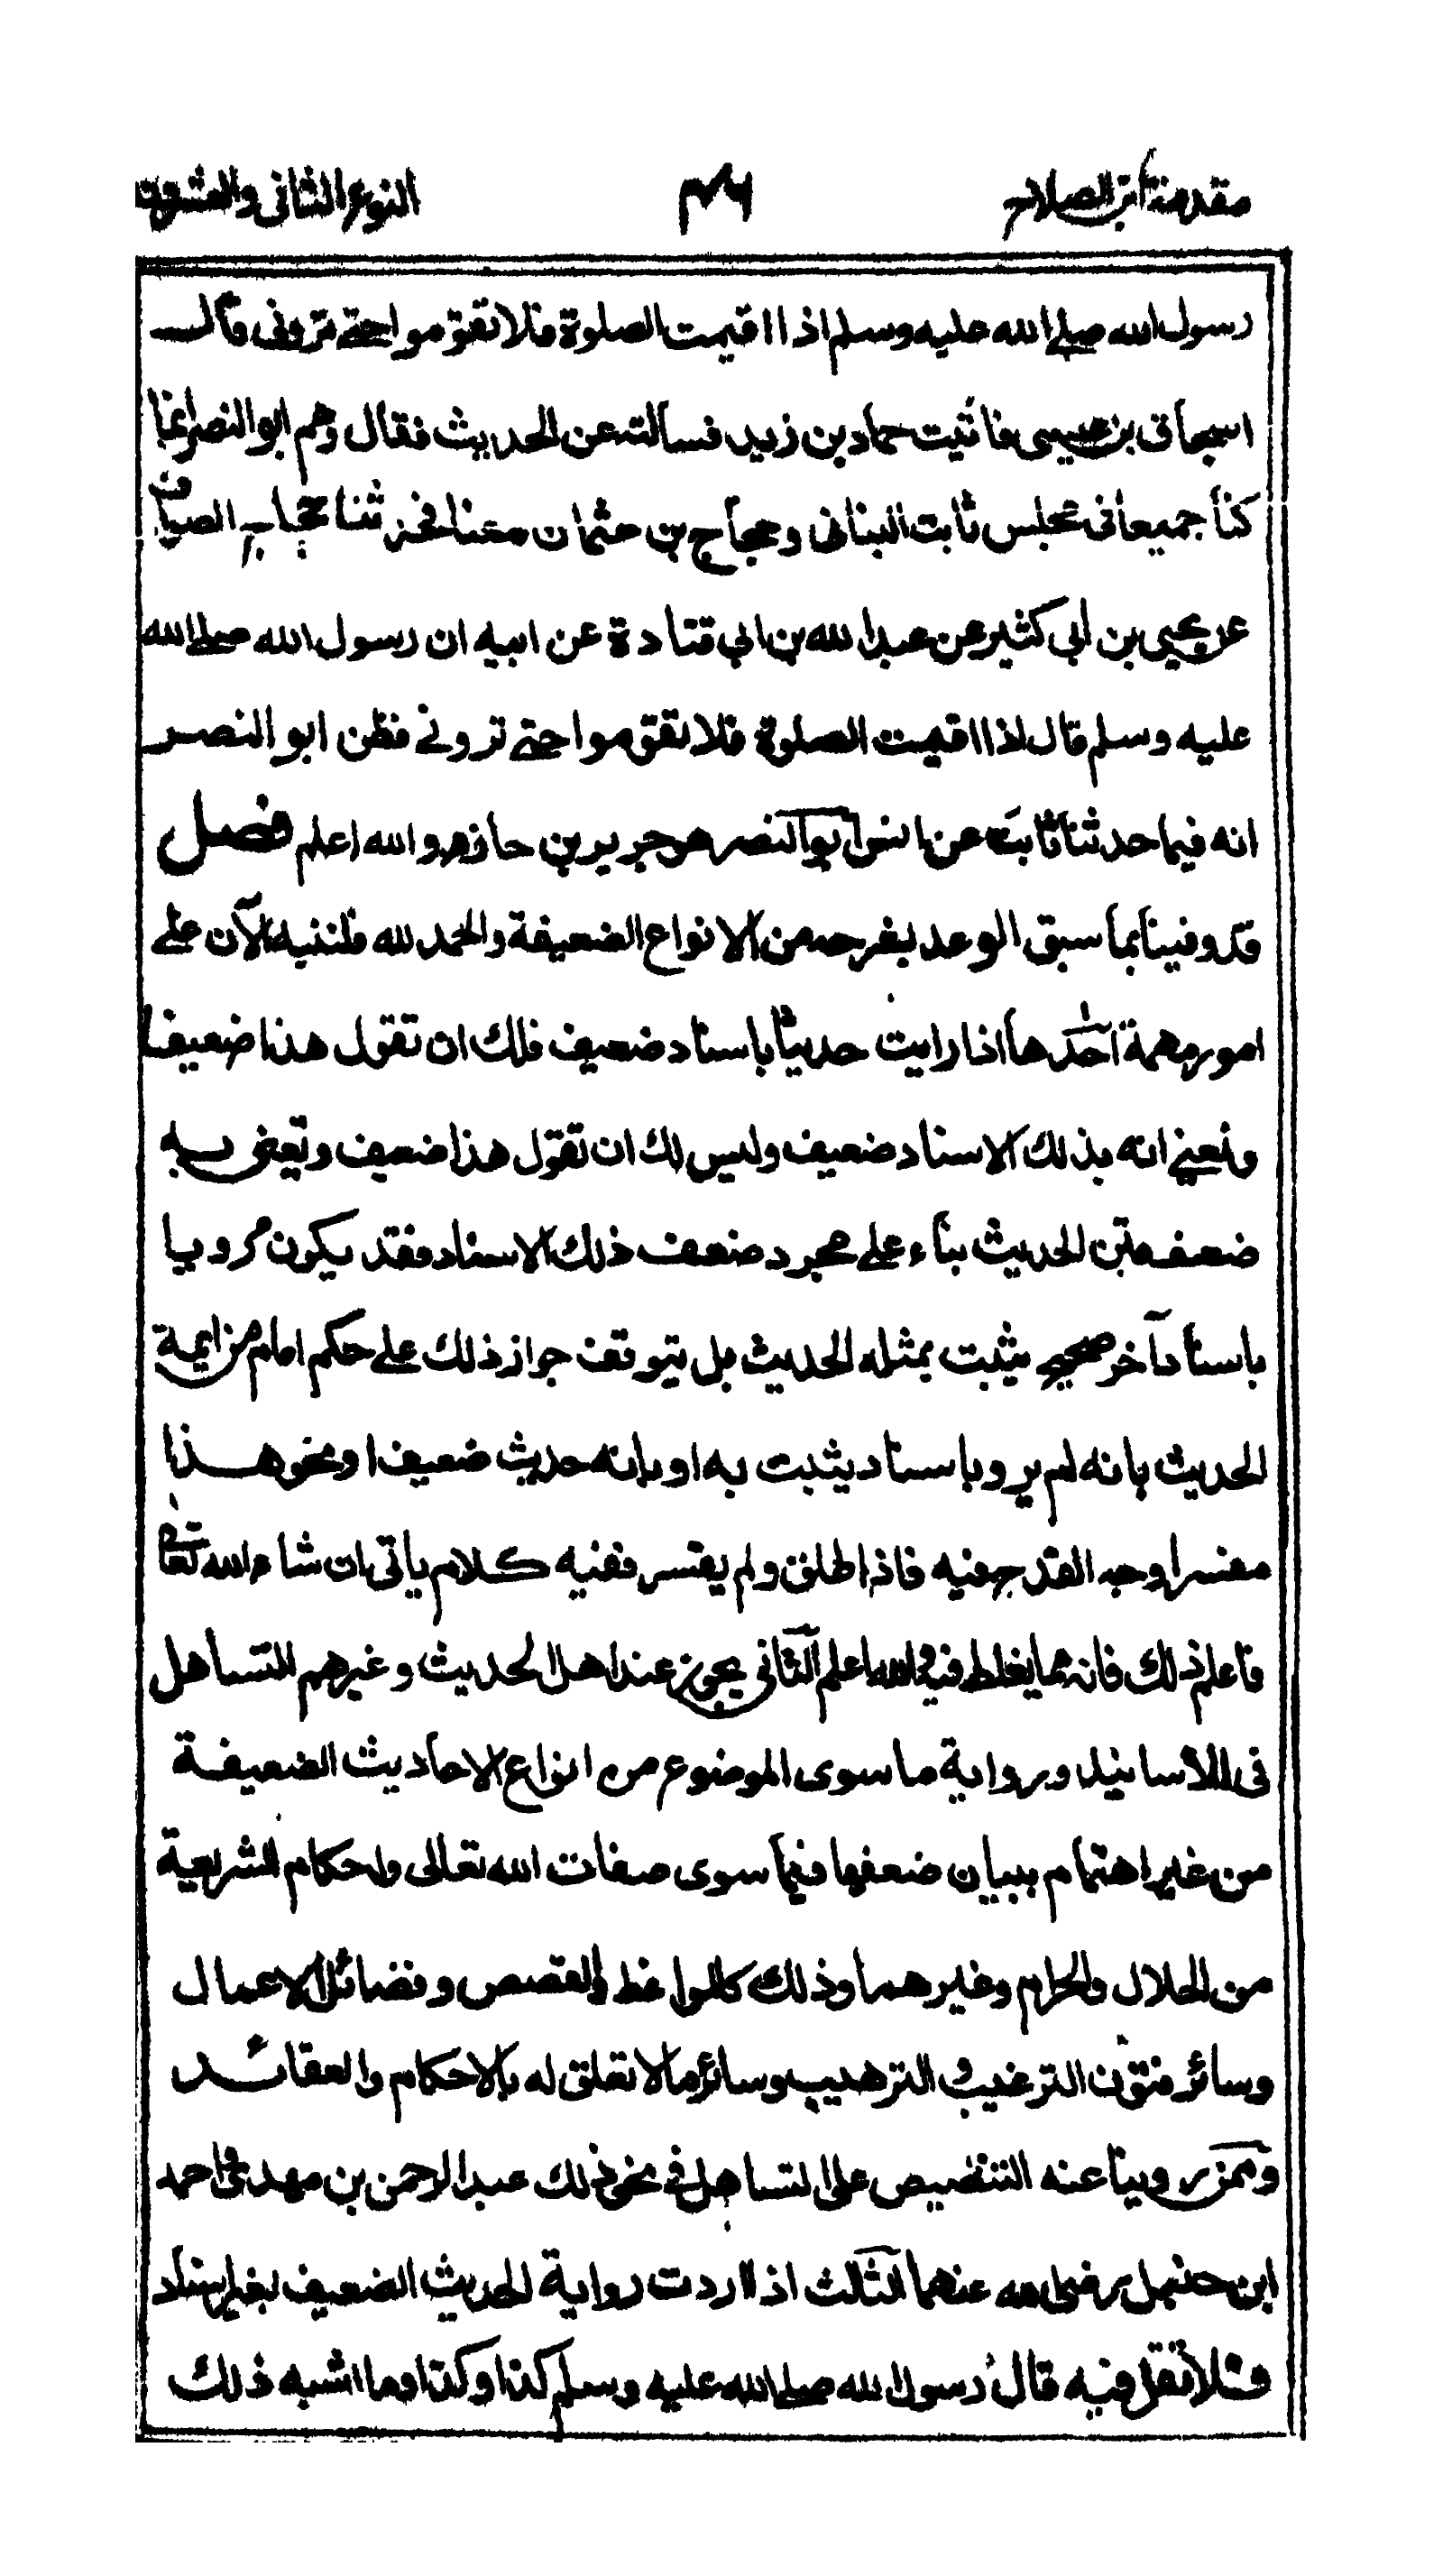 مقدمة ابن الصلاح ٤٩ النوع الثانى والعشرون
رسول الله صلے الله عليه وسلم اذا اقيمت الصلوة فلا تقوموا حتے ترونى قال
اسحاق بن عيسى فاتيت حماد بن زيد فسالته عن الحديث فقال وهم ابو النصر انما
كنا جميعا فى مجلس ثابت البنانى وحجاج بن عثمان معنا فحدثنا حجاب الصواف
عن يحيى بن ابي كثير عن عبد الله بن ابي قتادة عن ابيه ان رسول الله صلے الله
عليه وسلم قال اذا اقيمت الصلوة فلا تقوموا حتے ترونے فظن ابو النصر
انه فيما حدثنا ثابت عن انس ابو النصر هو جرير بن حازم والله اعلم فصل
قد وفينا بما سبق الوعد بشرحه من الانواع الضعيفة والحمد لله فلننبه الآن علے
امور مهمة احدها اذا رايت حديثا باسناد ضعيف فلك ان تقول هذا ضعيف
وتعنے انه بذلك الاسناد ضعيف وليس لك ان تقول هذا ضعيف وتعنى به
ضعف متن الحديث بناء علے مجرد ضعف ذلك الاسناد فقد يكون مرويا
باسناد آخر صحيح يثبت بمثله الحديث بل يتوقف جواز ذلك علے حكم امام من ايمة
الحديث بانه لم يرو باسناد يثبت به او بانه حديث ضعيف او نحو هذا
مفسرا وجه القدح فيه فاذا اطلق ولم يفسر ففيه كلام ياتى ان شاء الله تعالى
فاعلم ذلك فانه مما يغلط فيه والله اعلم الثانى يجوز عند اهل الحديث وغيرهم التساهل
فى الاسانيد ورواية ما سوى الموضوع من انواع الاحاديث الضعيفة
من غير اهتمام ببيان ضعفها فيما سوى صفات الله تعالى واحكام الشريعة
من الحلال والحرام وغيرهما وذلك كالمواعظ والقصص وفضائل الاعمال
وسائر فنون الترغيب والترهيب وسائر ما لا تعلق له بالاحكام والعقائد
وممن روينا عنه التنصيص على التساهل فى نحو ذلك عبد الرحمن بن مهدى واحمد
ابن حنبل رضى الله عنهما الثالث اذا اردت رواية الحديث الضعيف بغير اسناد
فلا تقل فيه قال رسول الله صلے الله عليه وسلم كذا وكذا وما اشبه ذلك